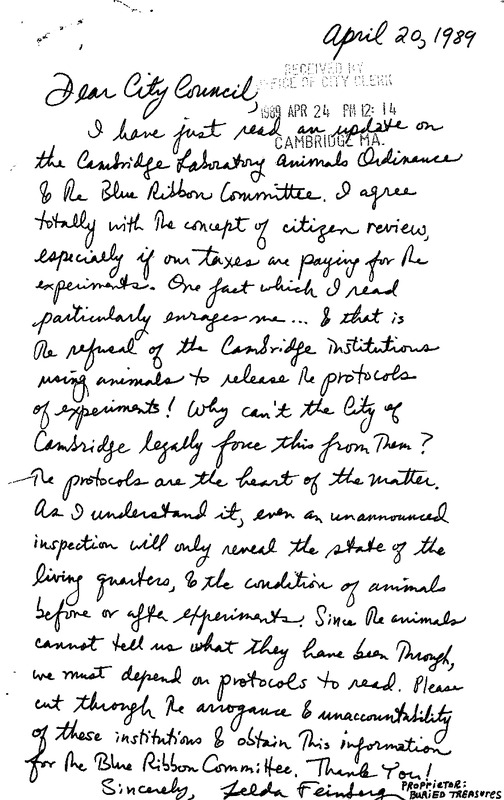 April 20, 1989
RECEIVED BY
OFFICE OF CITY CLERK
Dear City Council,
1989 APR 24 PM 12:14
I have just read an update on
CAMBRIDGE MA.
the Cambridge Laboratory Animals Ordinance
& the Blue Ribbon Committee. I agree
totally with the concept of citizen review,
especially if our taxes are paying for the
experiments. One fact which I read
particularly enrages me... & that is
the refusal of the Cambridge Institutions
using animals to release the protocols
of experiments! Why can't the City of
Cambridge legally force this from them?
The protocols are the heart of the matter.
As I understand it, even an unannounced
inspection will only reveal the state of the
living quarters, & the condition of animals
before or after experiments. Since the animals
cannot tell us what they have been through,
we must depend on protocols to read. Please
cut through the arrogance & unaccountability
of these institutions & obtain this information
for the Blue Ribbon Committee. Thank You!
Sincerely, Zelda Feinberg PROPRIETOR:
BURIED TREASURES